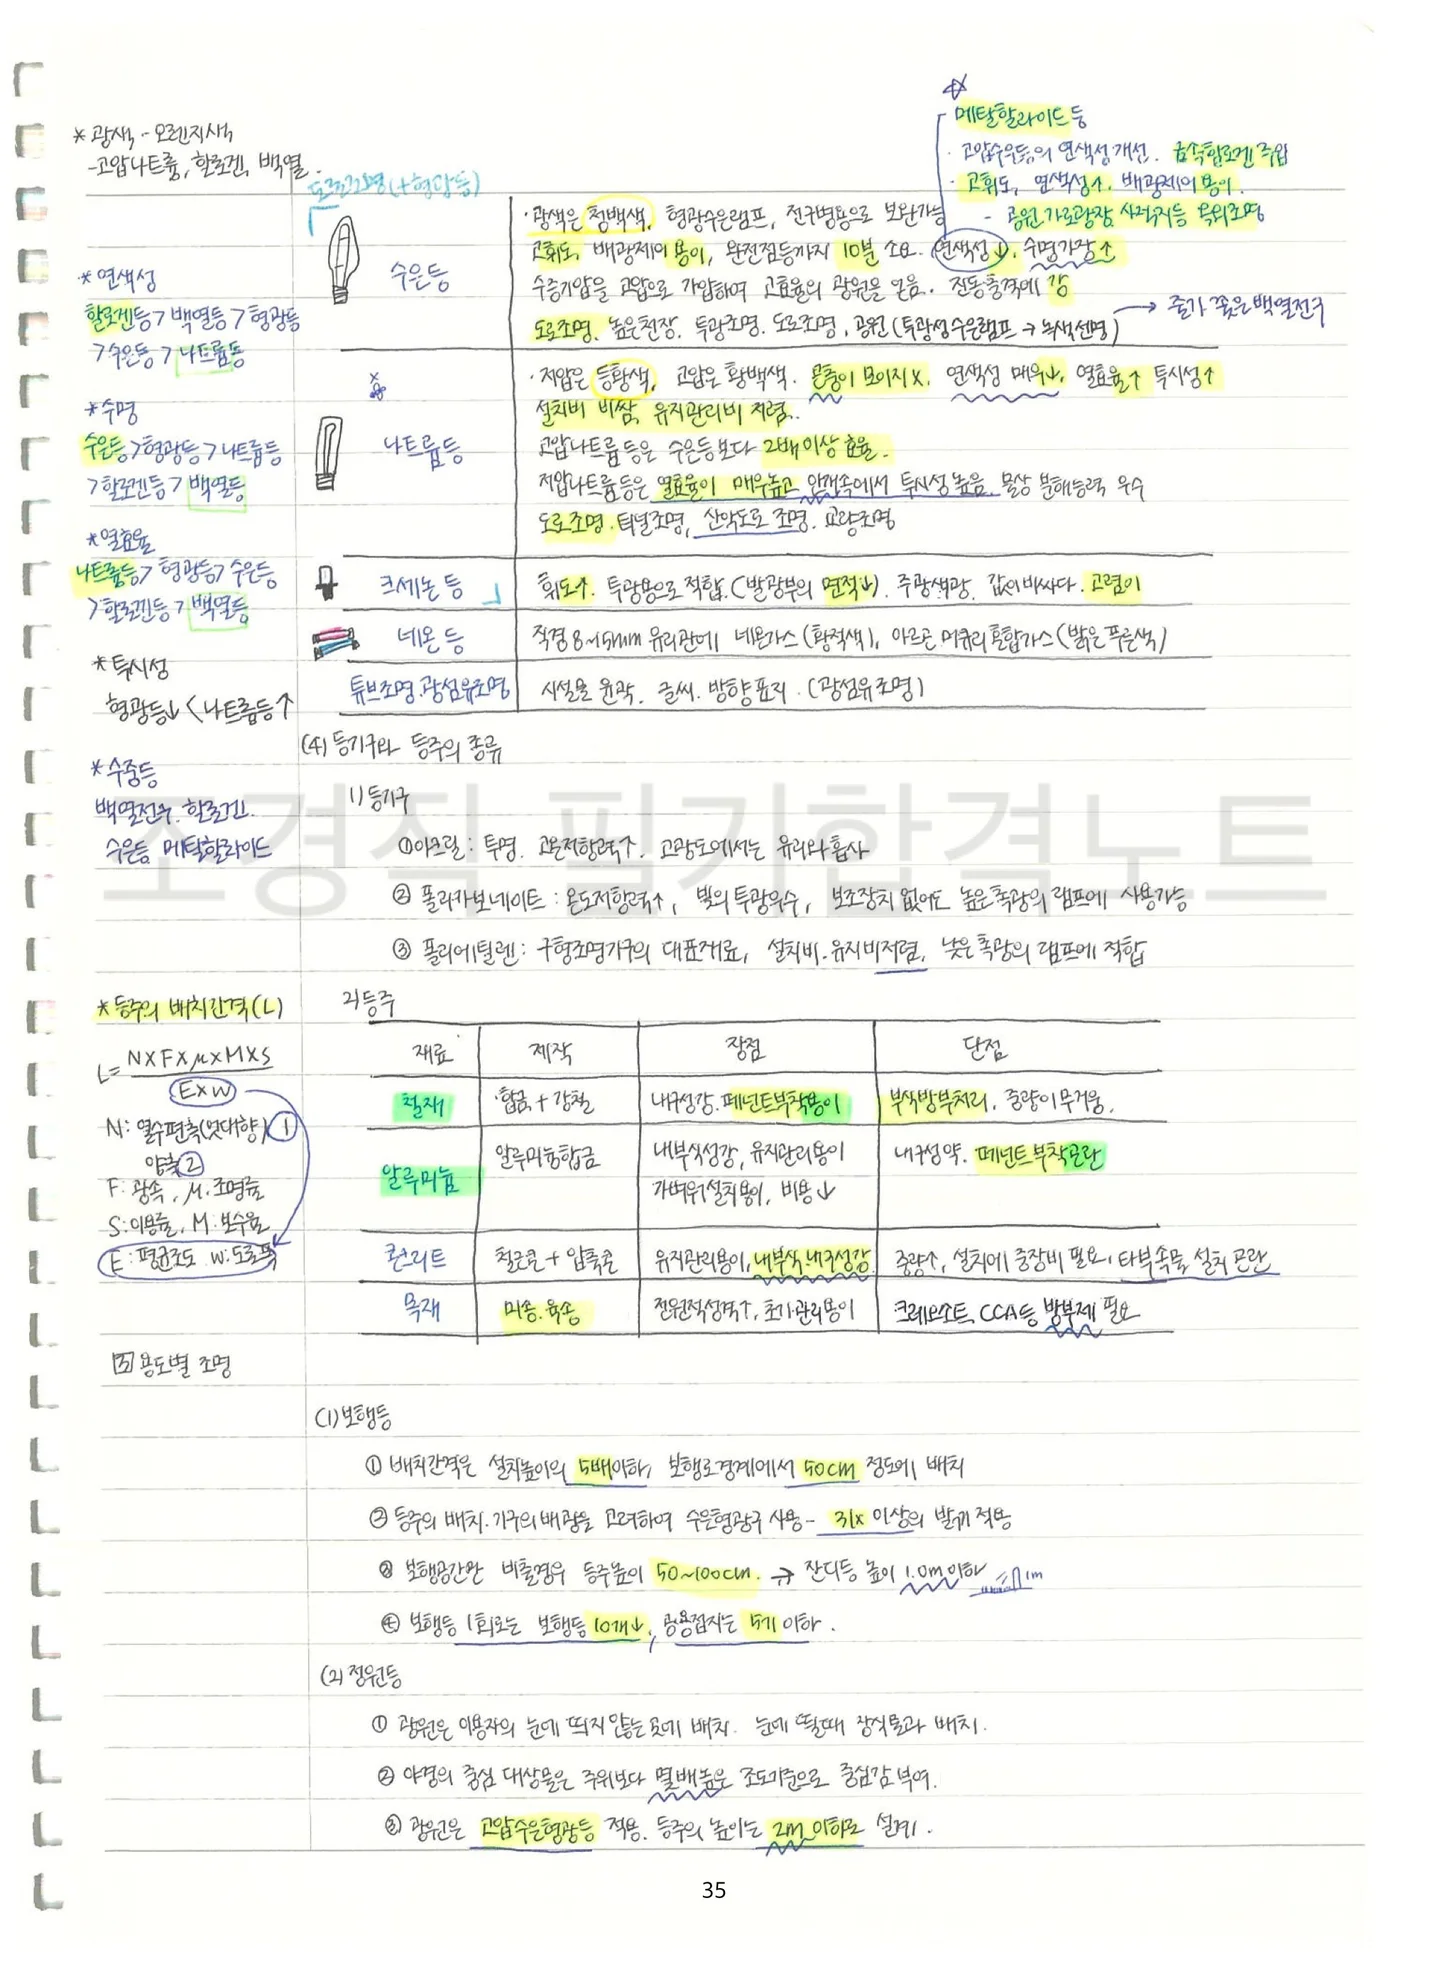 * 광색 - 오렌지색
- 고압나트륨, 할로겐, 백열.
* 연색성
할로겐등 > 백열등 > 형광등
> 수은등 > 나트륨등
* 수명
수은등 > 형광등 > 나트륨등
> 할로겐등 > 백열등
* 열효율
나트륨등 > 형광등 > 수은등
> 할로겐등 > 백열등
* 투시성
형광등↓ < 나트륨등↑
* 수중등
백열전구. 할로겐.
수은등 메탈할라이드
메탈할라이드등
· 고압수은등의 연색성개선. 금속할로겐 주입
· 고휘도, 연색성↑. 배광제어 용이.
- 공원. 가로광장. 사적지등 옥외조명
도로조명(+형광등)
수은등
· 광색은 청백색, 형광수은램프, 전구병용으로 보완가능
고휘도, 배광제어 용이, 완전점등까지 10분 소요. 연색성↓. 수명가장↑
수증기압을 고압으로 가압하여 고효율의 광원을 얻음. 진동충격에 강
도로조명. 높은천장. 투광조명. 도로조명. 공원(투광성수은램프 → 녹색선명) → 줄기 쫓은 백열전구
나트륨등
· 저압은 등황색, 고압은 황백색. 곤충이 모이지 X. 연색성 매우↓. 열효율↑ 투시성↑
설치비 비쌈, 유지관리비 저렴.
고압나트륨등은 수은등보다 2배이상 효율.
저압나트륨등은 열효율이 매우높고 안개속에서 투시성 높음. 물상 분해능력 우수
도로조명. 터널조명, 산악도로 조명. 교량조명
크세논등
휘도↑. 투광용으로 적합. (발광부의 면적↓). 주광색광. 값이 비싸다. 고렴이
네온등
직경 8~15mm 유리관에 네온가스(황적색), 아르곤 머큐리 혼합가스(밝은 푸른색)
튜브조명. 광섬유조명
시설물 윤곽. 글씨. 방향표지. (광섬유조명)
(4) 등기구와 등주의 종류
1) 등기구
① 아크릴: 투명. 고온저항력↑. 고광도에서는 유리와 흡사
② 폴리카보네이트: 온도저항력↑, 빛의 투광우수, 보조장치 없이도 높은 촉광의 램프에 사용가능
③ 폴리에틸렌: 구형조명기구의 대표재료, 설치비. 유지비 저렴, 낮은 촉광의 램프에 적합
* 등주의 배치간격(L)
L = N×F×μ×M×S
E×W
N: 열수편측(맞대향) ①
양측 ②
F: 광속, μ: 조명률
S: 이용률, M: 보수율
E: 평균조도 W: 도로폭
2) 등주
재료 제작 장점 단점
철재 합금 + 강철 내구성강. 페넌트부착용이 부식방부처리. 중량이 무거움.
알루미늄 알루미늄합금 내부식성강, 유지관리용이 내구성약. 페넌트부착곤란
가벼워설치용이, 비용↓
콘크리트 철근콘 + 압축콘 유지관리용이, 내부식.내구성강 중량↑, 설치에 중장비 필요, 타부속물 설치 곤란
목재 미송. 육송 전원적성격↑, 초기관리용이 크레오소트, CCA등 방부제 필요
5 용도별 조명
(1) 보행등
① 배치간격은 설치높이의 5배이하, 보행로경계에서 50cm 정도에 배치
② 등주의 배치. 기구의 배광을 고려하여 수은형광구 사용 - 3lx 이상의 밝기 적용
③ 보행공간만 비출경우 등주높이 50~100cm. → 잔디등 높이 1.0m이하 1m
④ 보행등 1회로는 보행등 10개↓, 공용접지는 5기 이하.
(2) 정원등
① 광원은 이용자의 눈에 띄지 않는 곳에 배치. 눈에 띌때 장식물과 배치.
② 야경의 중심 대상물은 주위보다 몇배높은 조도기준으로 중심감 부여.
③ 광원은 고압수은형광등 적용. 등주의 높이는 2m 이하로 설계.
조경직 필기합격노트
35